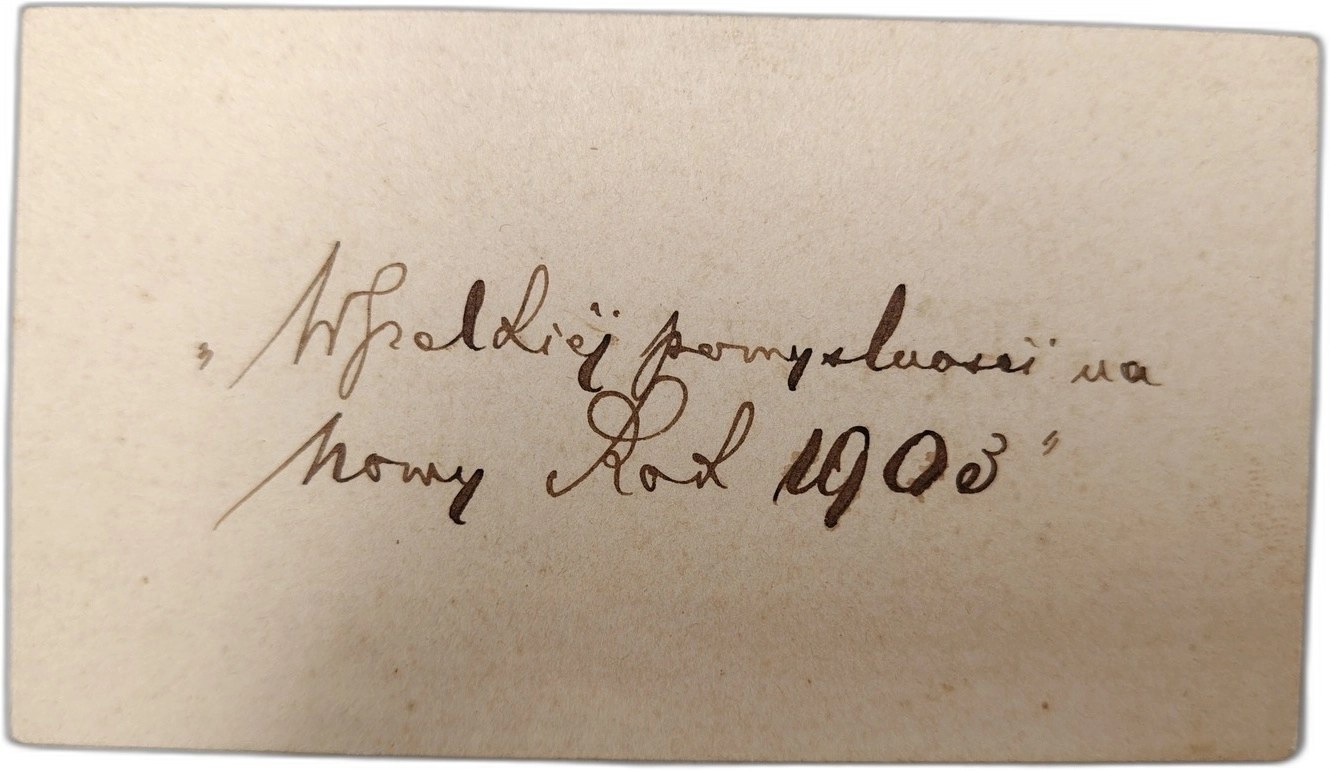 „Wszelkiéj pomyslnosci na
Nowy Rok 1903”